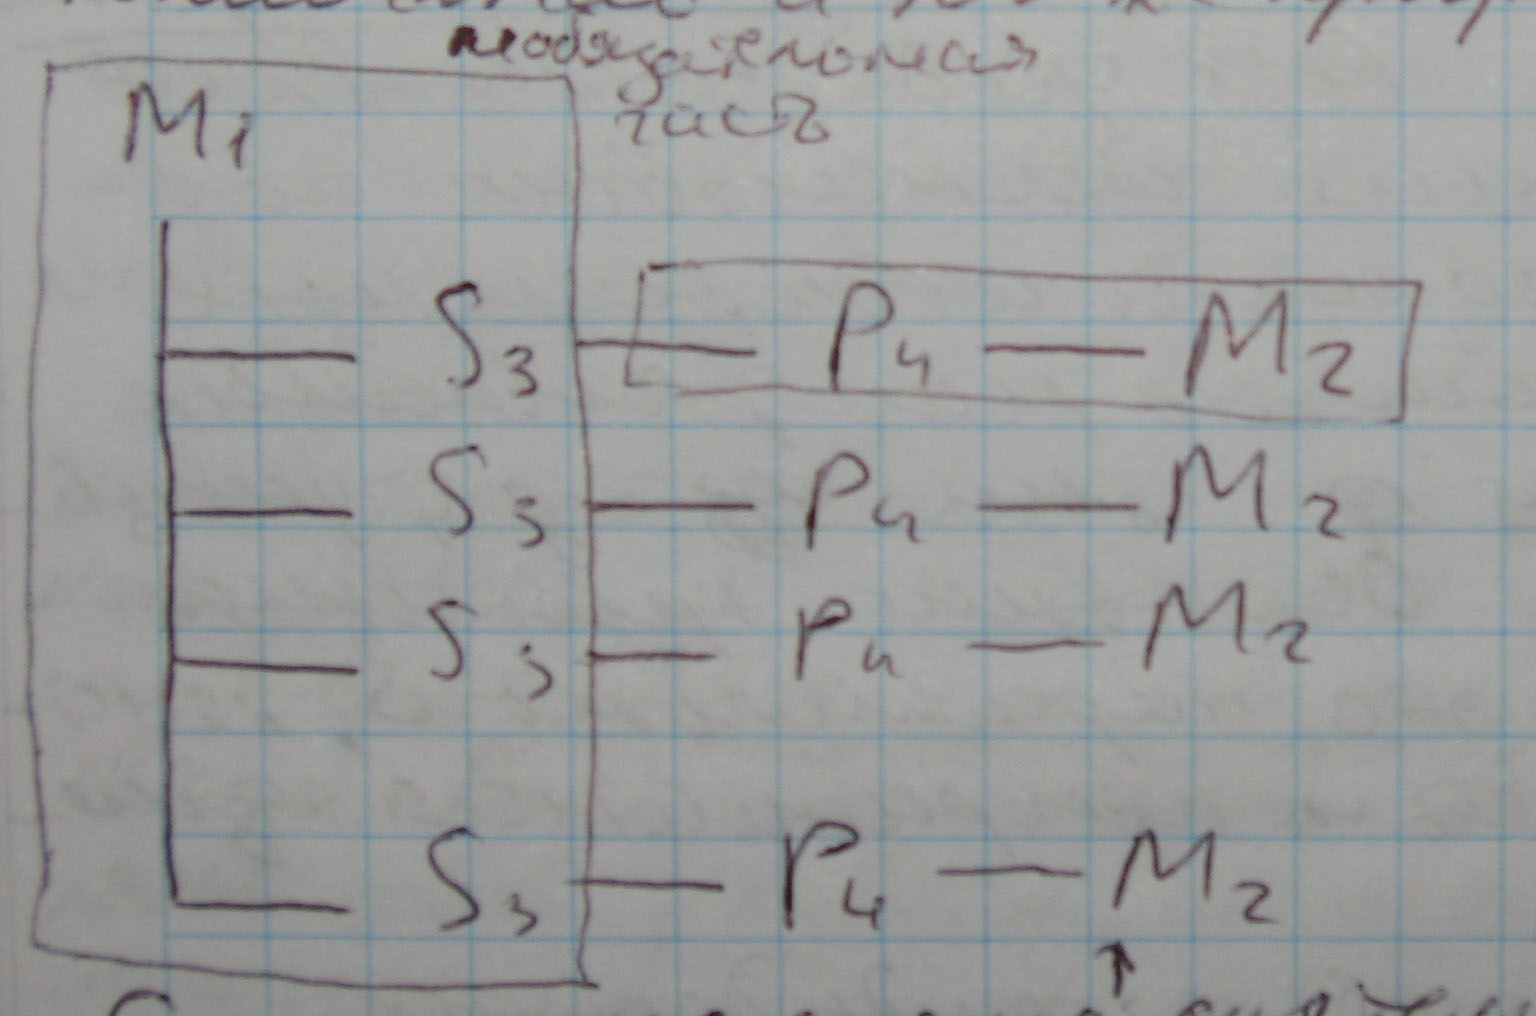 необязательная
часть
M1
S3 — P4 — M2
S3 — P4 — M2
S3 — P4 — M2
S3 — P4 — M2
↑